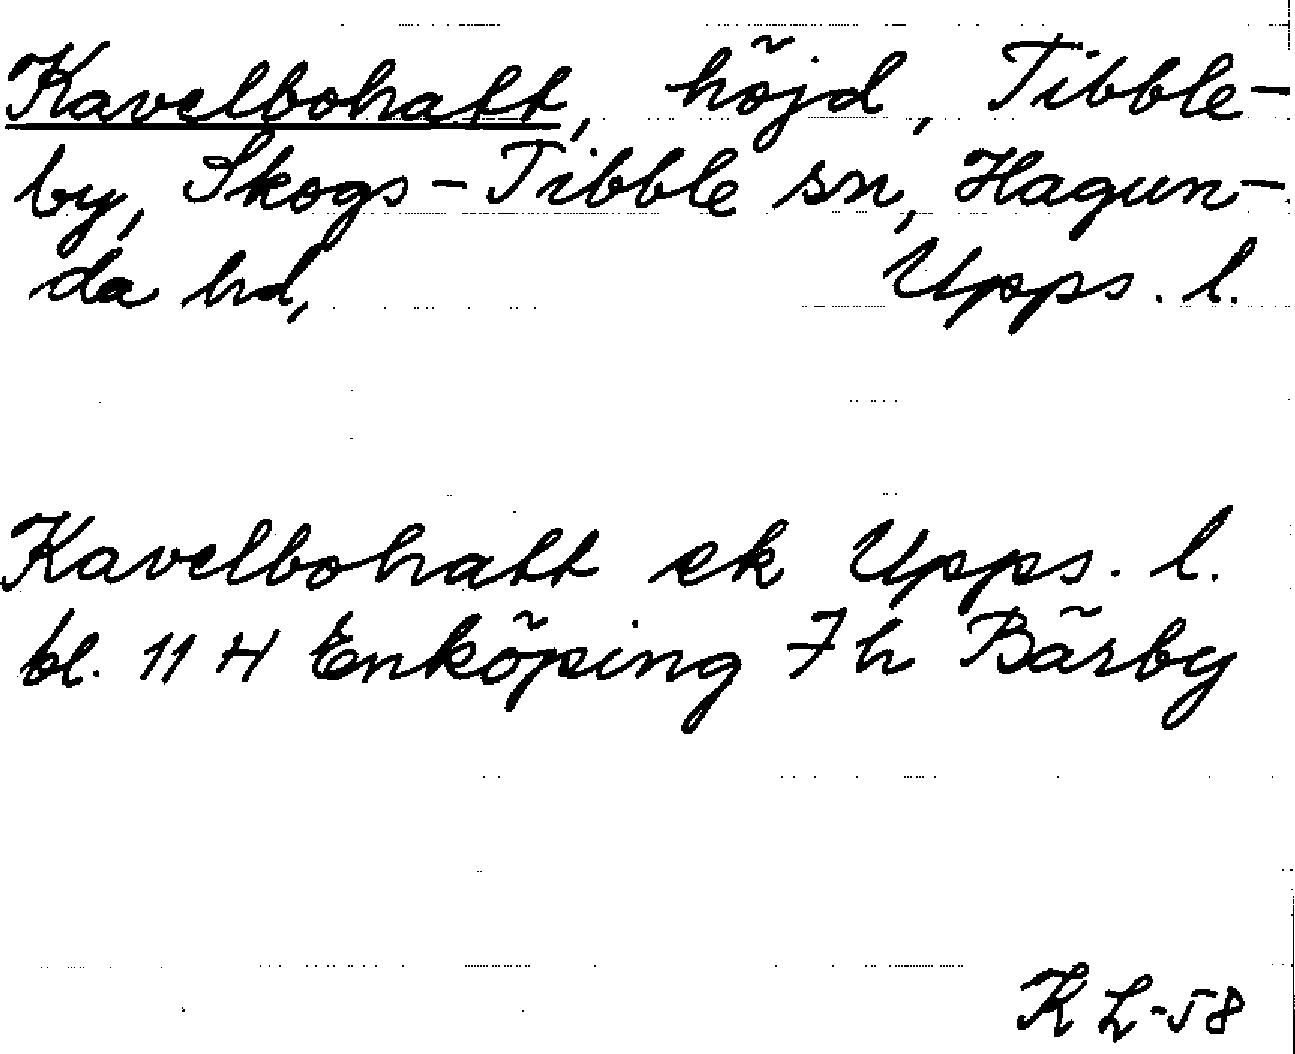 Kavelbohatt, höjd, Tibble-
by, Skogs-Tibble sn, Hagun-
da hd, Upps. l.
Kavelbohatt ek Upps. l.
bl. 11 H Enköping 7 h Bärby
KL-58